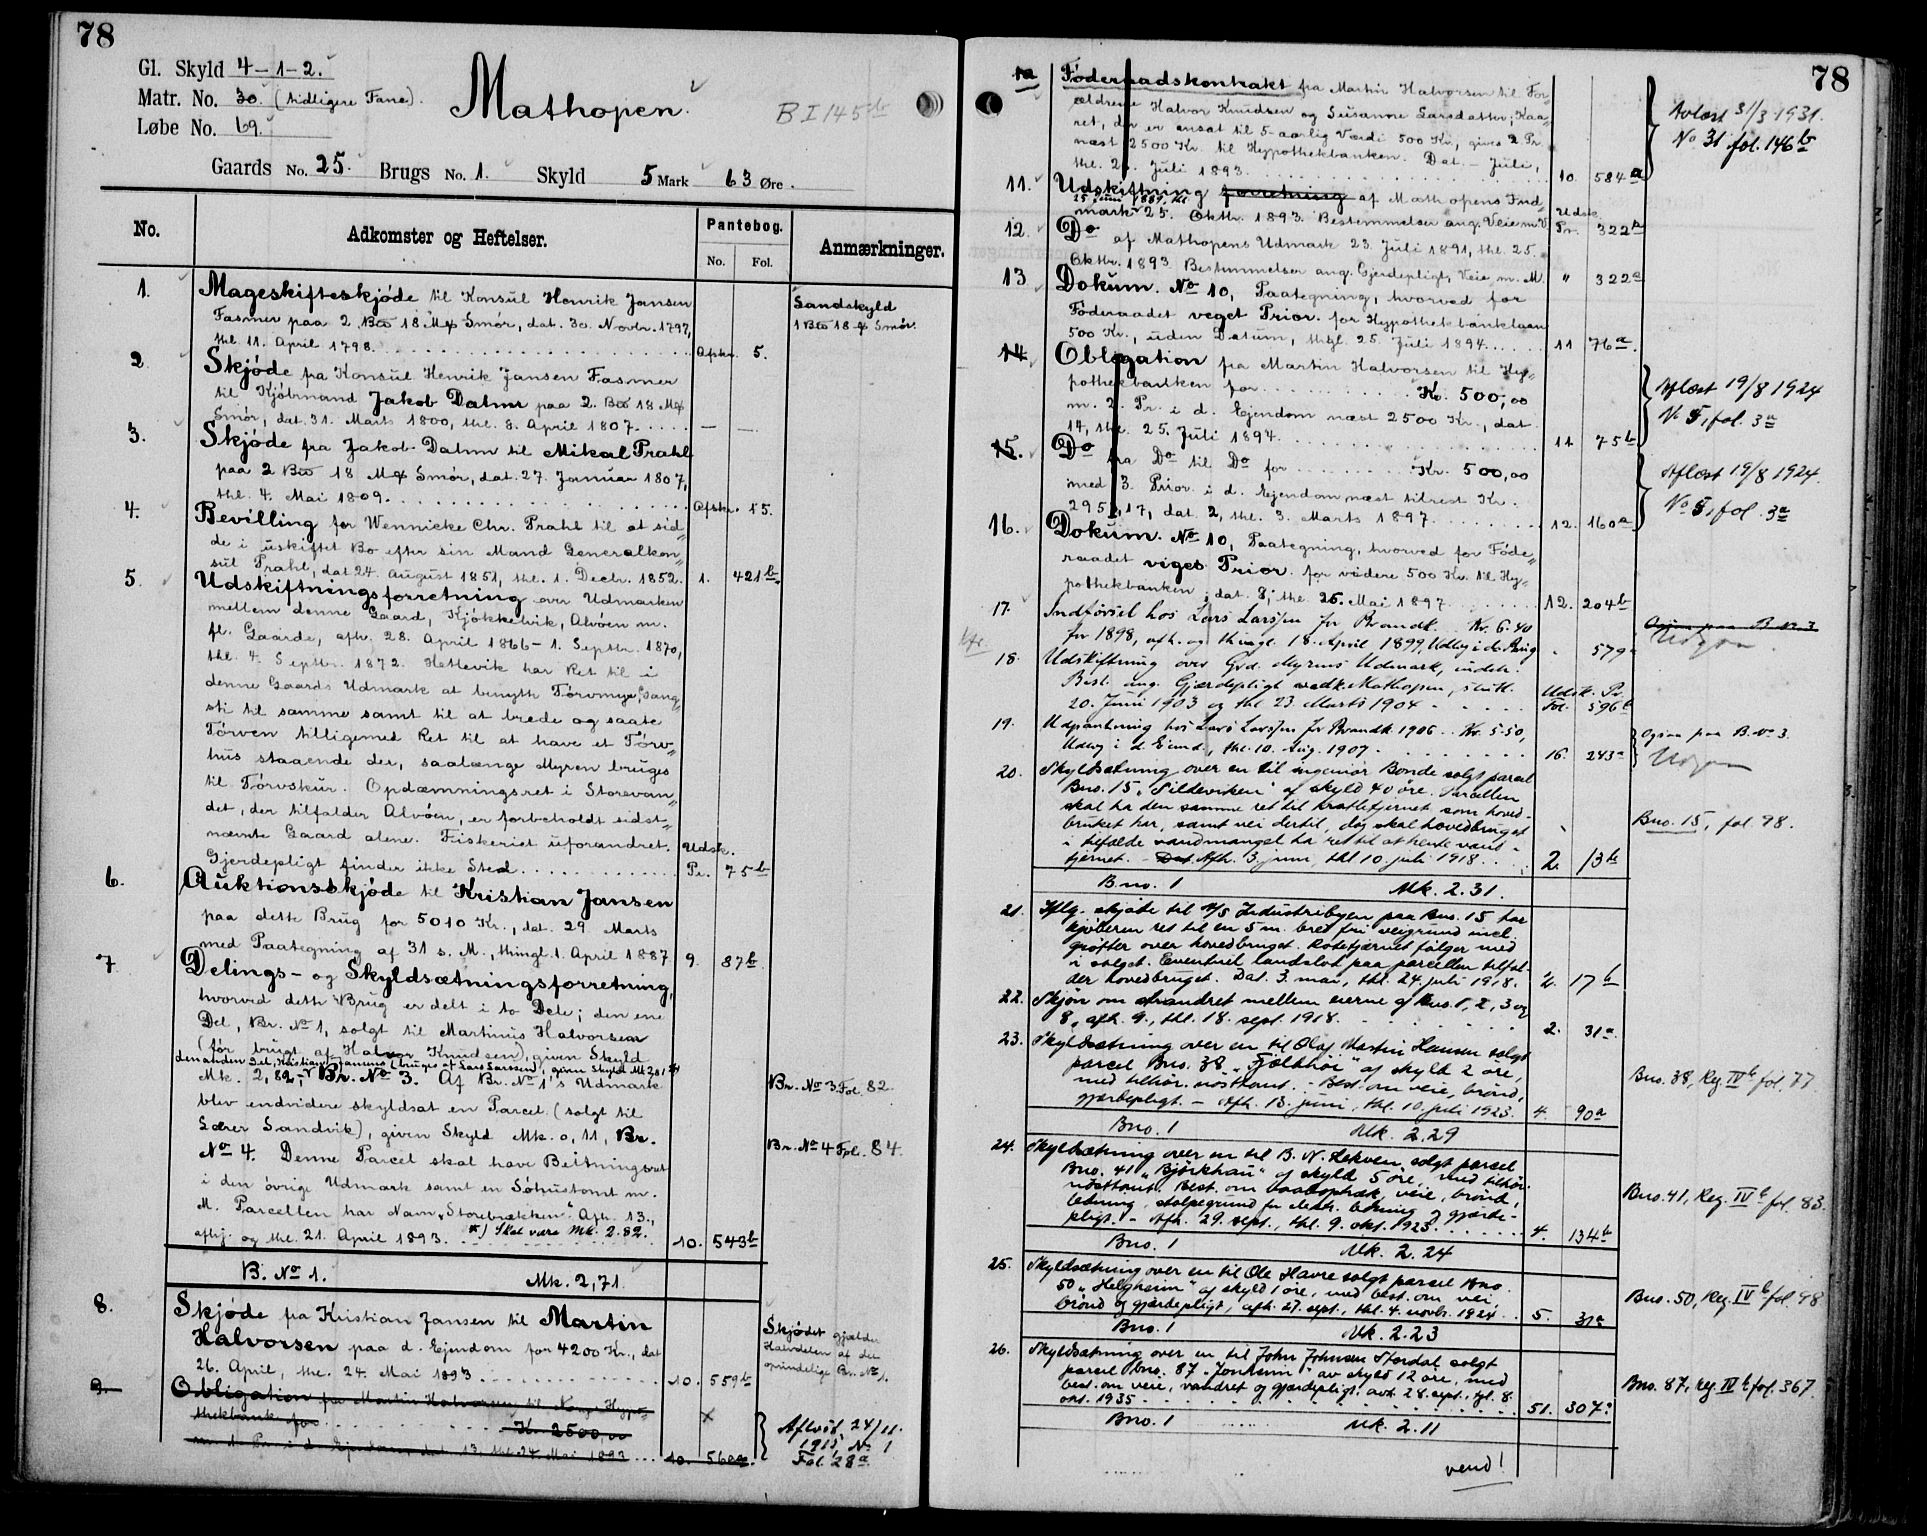 78
Gl. Skyld 4-1-2.
Matr. No. 30. (tidligere Fane).
Løbe No. 69.
Mathopen
B I 145b
Gaards No. 25. Brugs No. 1. Skyld 5 Mark 63 Øre.
No. Adkomster og Heftelser. Pantebog. No. Fol. Anmærkninger.
1. Mageskifteskjøde til Konsul Henrik Jansen
Fasmer paa 2 Bto 18 Mk Smør, dat. 30. Novbr. 1797,
thl. 11. April 1798. Afskr. 5.
Landskyld
1 Bto 18 Smør.
2 Skjøde fra Konsul Henrik Jansen Fasmer
til Kjøbmand Jakob Dahm paa 2. Bto 18 Mk
Smør, dat. 31. Marts 1800, thl. 8. April 1807. — —
3. Skjøde fra Jakob Dahm til Mikal Prahl
paa 2 Bto 18 Mk Smør, dat. 27. Januar 1807,
thl. 4. Mai 1809. Afskr. 15.
4. Bevilling for Wennicke Chr. Prahl til at sid-
de i uskiftet Bo efter sin Mand Generalkon-
sul Prahl, dat 24. August 1851, thl. 1. Decbr. 1852. 1. 421b.
5. Udskiftningsforretning over Udmarken
mellem denne Gaard, Kjøkkelvik, Alvøen m.
fl. Gaarde, afh. 28. April 1866 – 1. Septbr. 1870,
thl. 4. Septbr. 1872. Hettevik har Ret til i
denne Gaards Udmark at benytte Tørvmyr, Gang-
sti til samme samt til at brede og saate
Tørven tilligemed Ret til at have et Tørv-
hus staaende der, saalænge Myren bruges
til Tørvskur. Opdæmningsret i Storevan-
det, der tilfalder Alvøen, er forbeholdt sidst-
nævnte Gaard alene. Fiskeriet uforandret.
Gjerdepligt finder ikke Sted. Udsk. Pr. 75b
6. Auktionsskjøde til Kristian Jansen
paa dette Brug for 5010 Kr., dat. 29. Marts
med Paategning af 31 s. M., thingl. 1. April 1887 9. 87b.
7 Delings- og Skyldsætningsforretning,
hvorved dette Brug er delt i to Dele; den ene
Del, Br. No 1, solgt til Martinus Halvorsen
(før brugt af Halvor Knudsen), given Skyld
den anden Del, Kristian Jansens (bruges af Lars Larssen), given Skyld Mk 2,81
Mk. 2,82, Br. No 3. Af Br. No 1's Udmark
blev endvidere skyldsat en Parcel (solgt til
Lærer Sandvik), given Skyld Mk. 0,11, Br.
No 4. Denne Parcel skal have Beitningsret
i den øvrige Udmark samt en Søhustomt m.
M. Parcellen har Navn „Storebrækken". Afh. 13.,
afhj. og thl. 21. April 1893. *) Skal være Mk. 2.82. 10. 543b
Br. No 3 Fol. 82.
Br. No 4 Fol. 84.
B. No 1. Mk. 2,71.
8. Skjøde fra Kristian Jansen til Martin
Halvorsen paa d. Ejendom for 4200 Kr., dat
26. April, thl. 24. Mai 1893 10. 559b
Skjødet gjælder
Halvdelen af det
oprindelige Br. No 1.
9. Obligation fra Martin Halvorsen til Norges Hypo-
thekbank for Kr. 2500,00
m. 1. Pr. i d. Ejendom, dat. 13, thl. 24. Mai 1893 10. 560a.
Aflyst 24/11.
1915, No 1
Fol. 28a.
78
10 Føderaadskontrakt fra Martin Halvorsen til For-
ældrene Halvor Knudsen og Susanne Larsdatter; Raa-
ret, der er ansat til 5-aarlig Værdi 500 Kr., gives 2 Pr.
næst 2500 Kr. til Hypothekbanken. Dat. – Juli,
thl. 2 . Juli 1893. 10. 584a
Avlæst 31/3 1931.
No 31 fol. 146b
11. Udskiftning forretning af Mathopens Ind-
25 Juni 1889, thl.
mark 25. Oktbr. 1893. Bestemmelser ang. Veie m. V. Udsk. Pr. 322a
12. Do af Mathopens Udmark 23. Juli 1891, thl. 25.
Oktbr. 1893. Bestemmelser ang. Gjerdepligt, Veie m. M. " 322a
13 Dokum. No 10, Paategning, hvorved for
Føderaadet veget Prior. for Hypothekbanklaan
500 Kr., uden Datum, thgl. 25. Juli 1894. 11 76a.
14 Obligation fra Martin Halvorsen til Hy-
pothekbanken for Kr. 500,00
m. 2. Pr. i d. Ejendom næst 2500 Kr., dat
14, thl. 25. Juli 1894. 11 75b
Aflæst 19/8 1924
No 5, fol. 3a
15. Do fra Do til Do for Kr. 500,00
med 3. Prior. i d. Ejendom næst tilrest Kr.
295,17, dat. 2, thl. 3. Marts 1897. 12. 160a
Aflæst 19/8 1924.
No 5, fol. 3a
16. Dokum. No 10, Paategning, hvorved for Føde-
raadet viges Prior. for videre 500 Kr. til Hy-
pothekbanken, dat. 8, thl. 25. Mai 1897 12. 204b
17. Indførsel hos Lars Larssen for Brandk. Kr. 6.40
for 1898, afh. og thingl. 18. April 1899, Udlæg i d. Brug " 579a
Ogsaa paa B. No 3
Udgaar
18. Udskiftning over Grd. Myrens Udmark, indeh.
Best. ang. Gjærdepligt vedk. Mathopen, slutt.
20. Juni 1903 og thl 23. Marts 1904 Udsk. Pr. Fol. 596b
19. Udpantning hos Lars Larssen for Brandk. 1906 Kr. 5.50,
Udlæg i d. Eiend., thl. 10. Aug. 1907. 16. 243a
Ogsaa paa B. No 3.
Udgaar
20. Skyldsætning over en til ingeniør Bonde solgt parcel
Bno. 15, „Sildeviken" af skyld 40 øre. Parcellen
skal ha den samme ret til kratlefjernet som hoved-
bruket har, samt vei dertil, dog skal hovedbruget
i tilfælde vandmangel ha ret til at hente vand i
tjernet. – Dat. Afh. 3. juni, thl 10. juli 1918. 2. 13b
Bno. 15, fol. 98.
Bno. 1 Mk. 2.31.
21. Iflg. skjøte til A/S Industribyen paa Bno. 15 har
kjøberen ret til en 5 m. bred fri veigrund incl.
grøfter over hovedbruget. Rotetjernet følger med
i salget. Eventuel landslot paa parcellen tilfal-
der hovedbruget. Dat. 3. mai, thl. 24. juli 1918. 2. 17b
22. Skjøn om strandret mellem eierne af Bno. 1, 2, 3 og
8, afh. 9., thl. 18. sept. 1918. 2. 31a
23. Skyldsætning over en til Olaf Martin Hansen solgt
parcel Bno. 38 „Fjøllhøi" af skyld 2 øre,
med tilhør. nosttomt. – Best. om veie, brønd,
gjærdepligt. – Afh. 18. juni, thl. 10. juli 1923. 4. 90a
Bno. 38, Reg. IVb fol. 77
Bno. 1 Mk. 2.29
24. Skyldsætning over en til B. N. Lekven solgt parcel
Bno. 41 „Bjørkhau" af skyld 5 øre, med tilhør.
nosttomt. Best. om baatoptræk, veie, brønd,
ledning, stolpegrund for elektr. ledning og gjærde-
pligt. – Afh. 29. sept., thl. 9. okt. 1923. 4. 134b
Bno. 41, Reg. IVb fol. 83.
Bno. 1 Mk. 2.24
25. Skyldsætning over en til Ole Havre solgt parcel Bno.
50 „Helgheim" af skyld 1 øre, med best. om vei,
brønd og gjærdepligt, afh. 27. sept., thl. 4. novbr. 1924. 5. 31a
Bno. 50, Reg. IVb fol. 98
Bno. 1 Mk. 2.23
26. Skyldsætning over en til John Johnsen Stordal solgt
parcel bno. 87 „Jonheim" av skyld 12 øre, med
best. om veie, vandret og gjærdepligt, avh. 28. sept., tgl. 8.
okt. 1935 51. 307
Bno. 87, Reg. IVb fol. 367
Bno. 1 Mk. 2.11
vend!